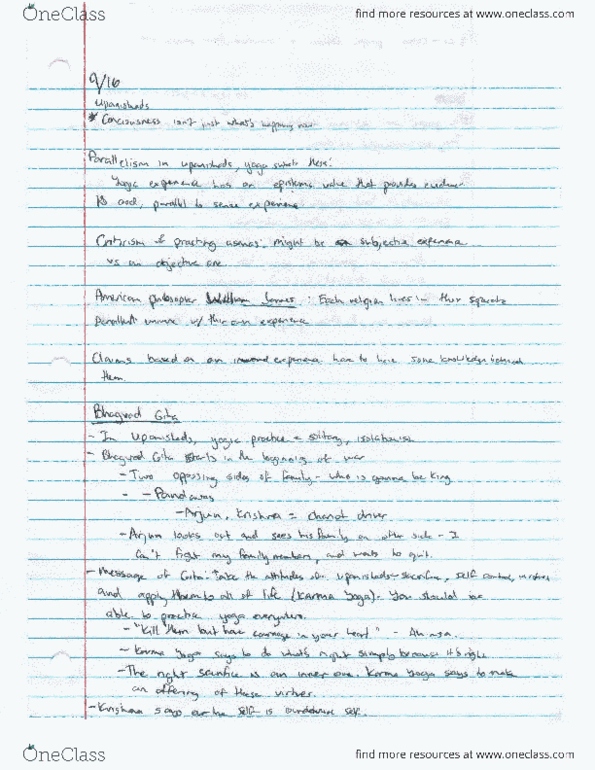 OneClass
find more resources at www.oneclass.com
9/16
Upanisheds
* Conciousness isn't just what's happening now
Parallelism in upanisheds, yoga sutats there:
Yogic experience has an value that provides evidence
is and, parallel to sense experience
Criticism of practing asanas: might be subjective experience
vs an objective one
American philosopher William James: Each religion lives in their separate
universe w/ their own experience
Claims based on an experience have to have some knowledge behind
them
Bhagvad Gita
- In Upanisheds, yogic practice = solitary,
- Bhagvad Gita starts in the beginning of war
- Two opposing sides of family - who is gonna be king
- - Pandavas
- Arjun, Krishna = chariot driver
- Arjun looks out and sees his family on other side - I
can't fight my family members, and wants to quit.
- Message of Gita: take the attitudes of upanisheds - sacrifice, self control,
and apply them to all of life (Karma Yoga) - You should be
able to practice yoga everywhere.
- "Kill them but have courage in your heart" -
- Karma Yoga says to do what's right simply because it's right
- The right sacrifice is an inner one. Karma Yoga says to make
an offering of these virtues.
- Krishna says self is self.
OneClass
find more resources at www.oneclass.com